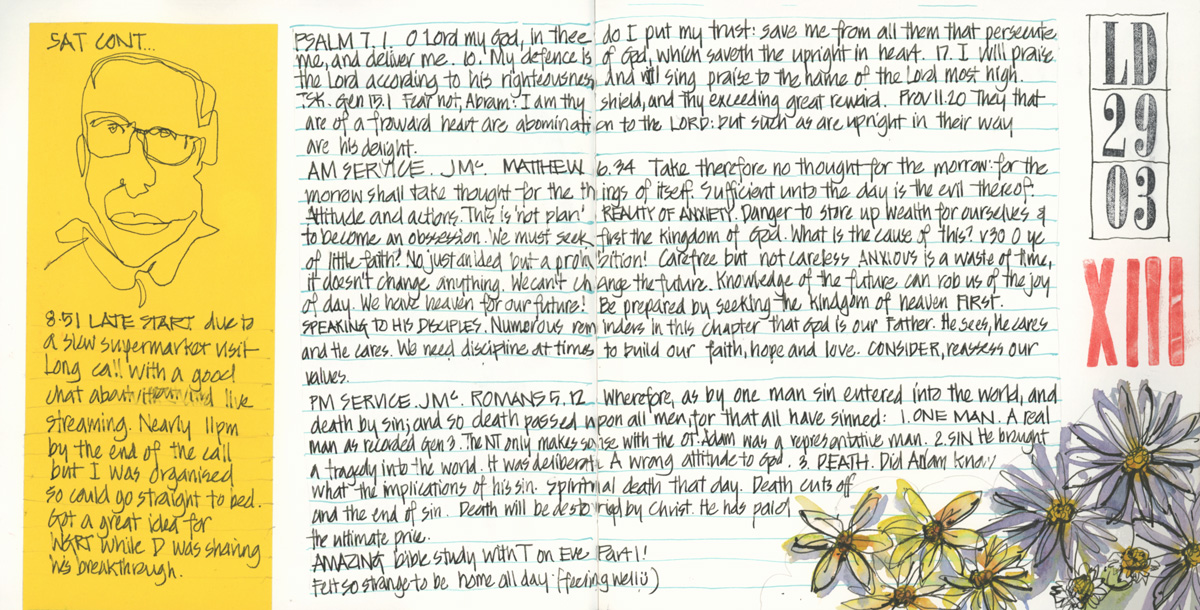 SAT CONT...
8:51 LATE START due to
a slow supermarket visit
Long call with a good
chat about live
streaming. Nearly 11pm
by the end of the call
but I was organised
so could go straight to bed.
Got a great idea for
WGRT while D was sharing
his breakthrough.
PSALM 7. 1. O Lord my God, in thee do I put my trust: save me from all them that persecute
me, and deliver me. 10. My defence is of God, which saveth the upright in heart. 17. I will praise
the Lord according to his righteousness and will sing praise to the name of the Lord most high.
TSK. Gen 15.1 Fear not, Abram: I am thy shield, and thy exceeding great reward. Prov 11.20 They that
are of a froward heart are abomination to the LORD: but such as are upright in their way
are his delight.
AM SERVICE. JMc. MATTHEW 6.34 Take therefore no thought for the morrow: for the
morrow shall take thought for the things of itself. Sufficient unto the day is the evil thereof.
Attitude and actions. This is 'not plan' REALITY OF ANXIETY. Danger to store up wealth for ourselves &
to become an obsession. We must seek first the kingdom of God. What is the cause of this? v30 O ye
of little faith? No just an idea but a prohibition! Carefree but not careless ANXIOUS is a waste of time,
it doesn't change anything. We can't change the future. Knowledge of the future can rob us of the joy
of day. We have heaven for our future! Be prepared by seeking the kindgom of heaven FIRST.
SPEAKING TO HIS DISCIPLES. Numerous reminders in this chapter that God is our Father. He sees, he cares
and He cares. We need discipline at times to build our faith, hope and love. CONSIDER, reassess our
values.
PM SERVICE. JMc. ROMANS 5.12 Wherefore, as by one man sin entered into the world, and
death by sin; and so death passed upon all men, for that all have sinned: 1. ONE MAN. A real
man as recorded Gen 3. The NT only makes sense with the OT. Adam was a representative man. 2. SIN He brought
a tragedy into the world. It was deliberate. A wrong attitude to God. 3. DEATH. Did Adam know
what the implications of his sin. Spiritual death that day. Death cuts off
and the end of sin. Death will be destoried by Christ. He has paid
the ultimate price.
AMAZING bible study with T on Eve Part 1!
Felt so strange to be home all day (feeling well :))
LD
29
03
XIII